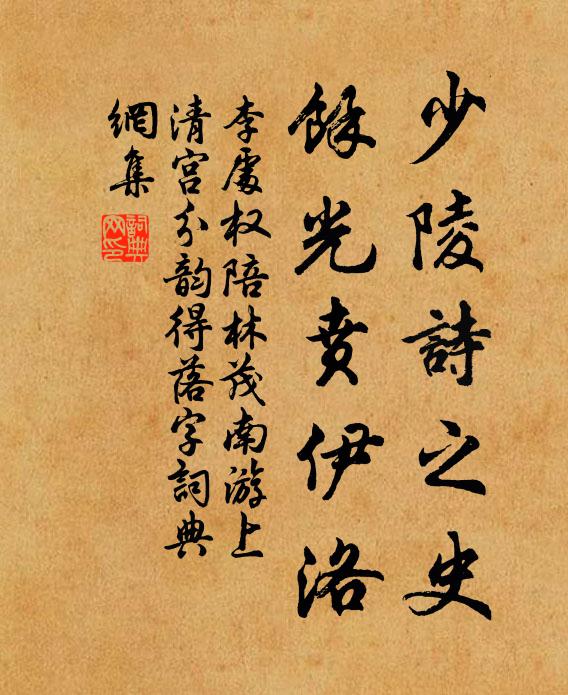 少陵詩之史
餘光賁伊洛
李處权陪林茂南游上
清宫分韵得落字詞典
網集
詞典網印